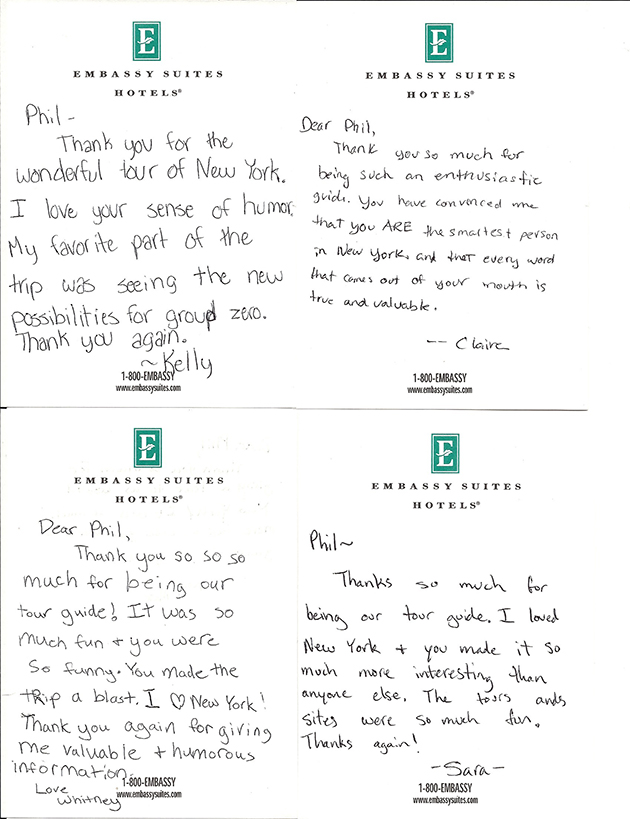 E
EMBASSY SUITES
HOTELS®
Phil -
Thank you for the
wonderful tour of New York.
I love your sense of humor.
My favorite part of the
trip was seeing the new
possibilities for group zero.
Thank you again.
~Kelly
1-800-EMBASSY
www.embassysuites.com
E
EMBASSY SUITES
HOTELS®
Dear Phil,
Thank you so much for
being such an enthusiastic
guide. You have convonced me
that you ARE the smartest person
in New York, and that every word
that comes out of your mouth is
true and valuable.
-- Claire
1-800-EMBASSY
www.embassysuites.com
E
EMBASSY SUITES
HOTELS®
Dear Phil,
Thank you so so so
much for being our
tour guide! It was so
much fun + you were
so funny. You made the
trip a blast. I ♡ New York!
Thank you again for giving
me valuable + humorous
information.
Love
Whitney
1-800-EMBASSY
www.embassysuites.com
E
EMBASSY SUITES
HOTELS®
Phil~
Thanks so much for
being our tour guide. I loved
New York + you made it so
much more interesting than
anyone else. The tours ands
sites were so much fun.
Thanks again!
-Sara-
1-800-EMBASSY
www.embassysuites.com